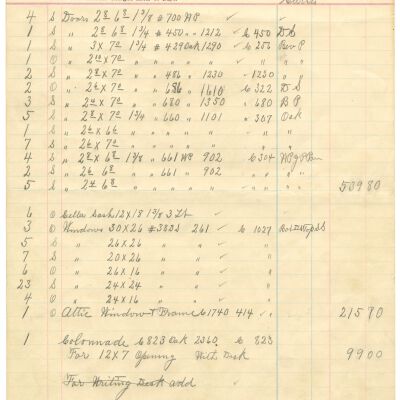 4 S Doors 2 8 6 8 1 3/8 #700 WP ✓
1 S " 2 8 6 8 1 3/4 # 450 " 1212 ✓ C 450 D S
1 S " 3 X 7 0 1 3/4 # 429 Oak 1290 ✓ C 253 Rev P
1 O " 2 10 X 7 0 " " " " " " "
2 S " 2 8 X 7 0 " " 486 " 1230 ✓ " 1230 " "
2 O " 2 6 X 7 0 " " 686 " 1610 C 322 D S
3 S " 2 10 X 7 0 " " 680 " 1350 " 680 B P
5 S " 2 8 X 7 0 1 3/4 " 660 " 1101 " 307 Oak
1 S " 2 6 X 6 6 " " " " " "
7 S " 2 6 X 7 0 " " " " " "
4 S " 2 8 X 6 8 1 3/8 " 661 WP 902 C 304
2 S " 2 6 6 8 " 661 " 902 " "
5 S " 2 4 6 8 " " " " " " 509 80
6 O Cellar Sash 12 X 18 1 3/8 3 Lt ✓
3 O Windows 30 X 26 # 380 S 261 ✓ C 1027
5 S " 26 X 26 " " ✓
7 S " 20 X 26 " " ✓
6 O " 26 X 16 " " ✓
23 S " 24 X 24 " " ✓
4 O " 24 X 16 " " ✓
1 O Attic Window & Frame C 1740 414 ✓ 215 80
1 Colonnade C 823 Oak 2360 C 823
For 12 X 7 Opening With Desk 99 00
For Writing Desk add ✓